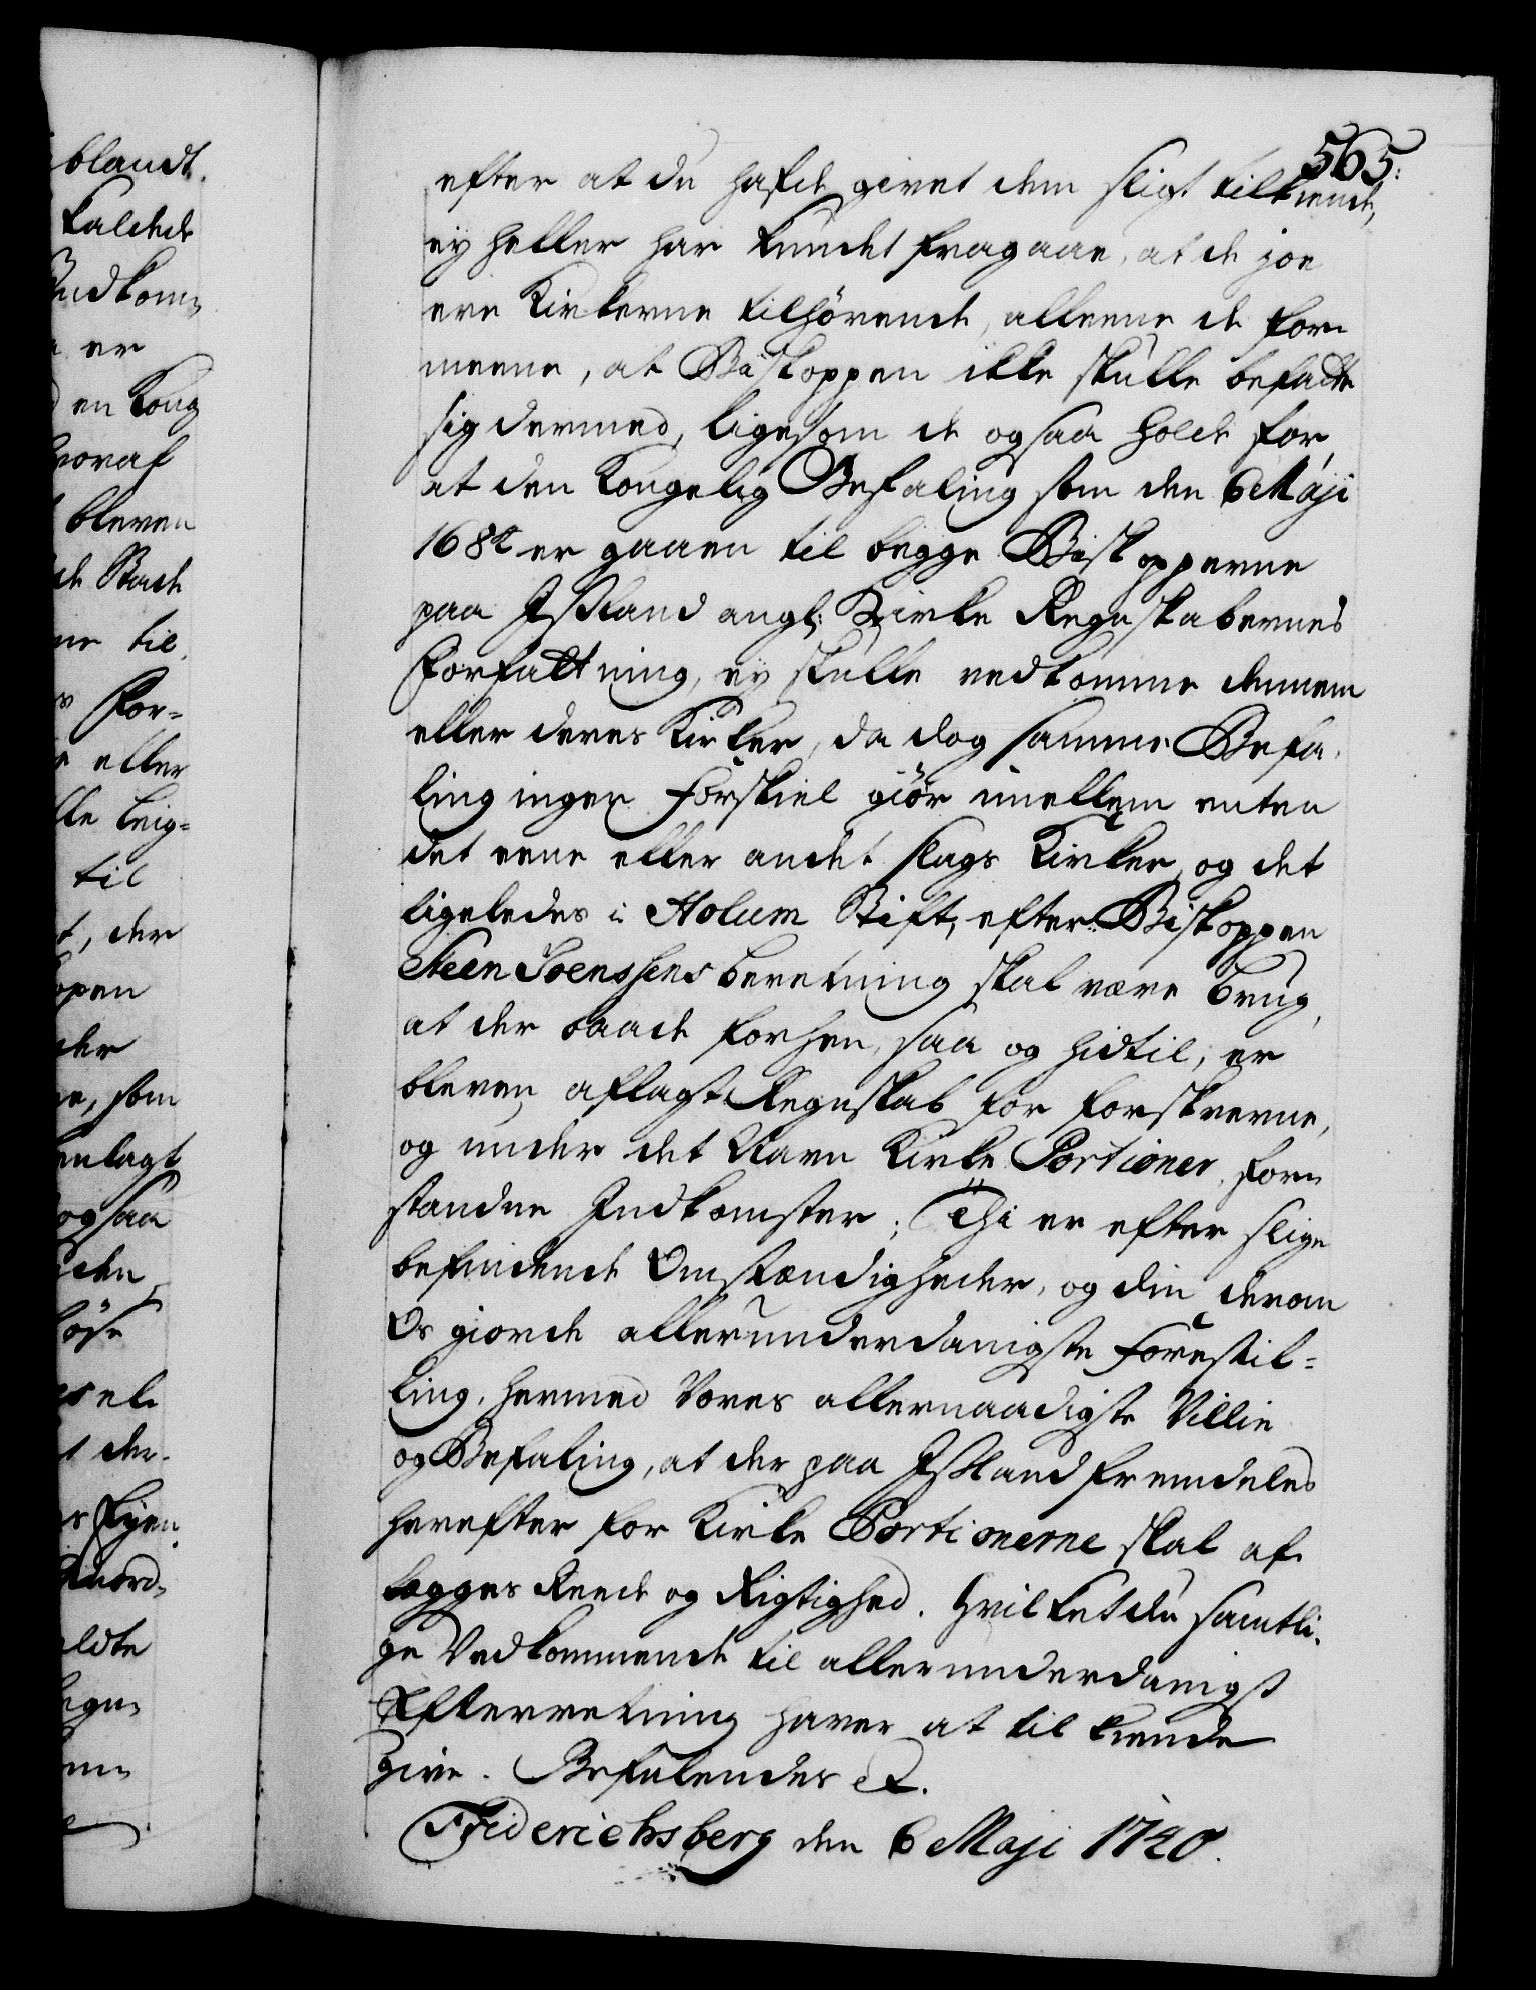 565.
efter at du hafde givet dem sligt tilkiende,
ey heller har kundet fragaae, at de joe
ere Kirkerne tilhörende, alleene de for
meene, at Biskoppen ikke skulle befatte
sig dermed, ligesom de ogsaa holde for,
at den Kongelig Befaling som den 6 Maji
168 er gaaen til begge Biskopperne
paa Jßland ang: Kirke Regnskabernes
Forfattning, ey skulle vedkomme dennem
eller deres Kirker, da dog samme Befa-
ling ingen Forskiel giör imellem enten
det eene eller andet slags Kirker, og det
ligeledes i Holum Stift, efter Biskoppen
Steen Joenssens beretning skal være brug,
at der baade forhen, saa og hidtil, er
bleven aflagt Regnskab for forskrevne,
og under det Navn Kirke Portioner, for
standne Indkomster; Thi er efter slige
befindende Omstændigheder, og din derom
Os giorde allerunderdanigste Forestil=
ling, hermed Vores allernaadigste Villie
og Befaling, at der paa Jßland fremdeles
herefter for Kirke Portionerne skal af
lægges Reede og Rigtighed. Hvilket du samtli-
ge Vedkommende til allerunderdanigst
Efterretning haver at til kiende
give. Befalendes etc.
Friderichsberg den 6 Maji 1740.
blandt
kaldede
Indkom=
er
en Kong
hvoraf
bleven
til
For=
eller
til
, der
der
, som
ogsaa